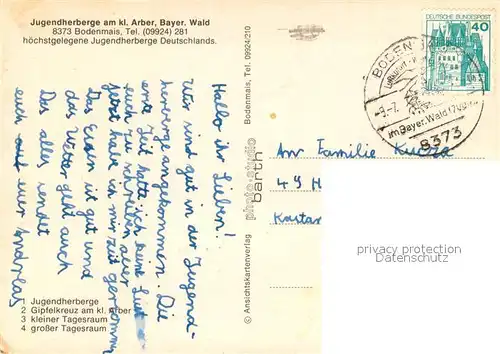 Jugendherberge am kl. Arber, Bayer. Wald
8373 Bodenmais, Tel. (09924) 281
höchstgelegene Jugendherberge Deutschlands.
Hallo ihr Lieben!
Wir sind gut in der Jugend-
herberge angekommen. Die
erste Zeit hatte ich keine Lust
euch zu schreiben aber
jetzt habe ich mir Zeit genommen
Das Essen ist gut und
das Wetter geht auch
Das alles sendet
euch euer Andreas
1 Jugendherberge
2 Gipfelkreuz am kl. Arber
3 kleiner Tagesraum
4 großer Tagesraum
© Ansichtskartenverlag
photo-studio
barth
Bodenmais, Tel. 09924/210
DEUTSCHE BUNDESPOST
40
BODENMAIS
Luftkurort
im Bayer. Wald
8373
An Familie
49 H
privacy protection